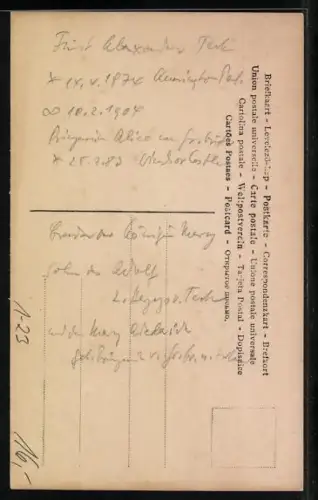 Fürst Alexander Teck
* 14. 4. 1874 Kensington Pal.
∞ 10.2.1904
Prinzessin Alice von
* 25.2.83 Windsor Castle
Bruder der Königin Mary
Sohn des Adolf
Herzogs v. Teck
und der Mary Adelaide
geb. Prinzessin v.
1-23
16,-
Briefkaart - Levelező-Lap - Postkarte - Correspondenzkart - Brefkort
Union postale universelle - Carte postale - Unione postale universale
Cartolina postale - Weltpostverein - Tarjeta Postal - Dopisnice
Cartões Postaes - Postcard - Открытое письмо.